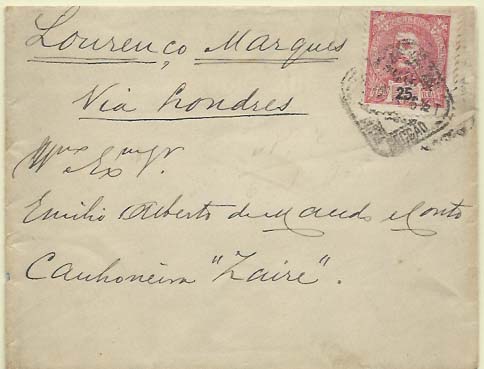 Lourenço Marques
Via Londres
Exmo Sr.
Emilio Alberto de Macedo e Couto
Canhoneira "Zaire".
25